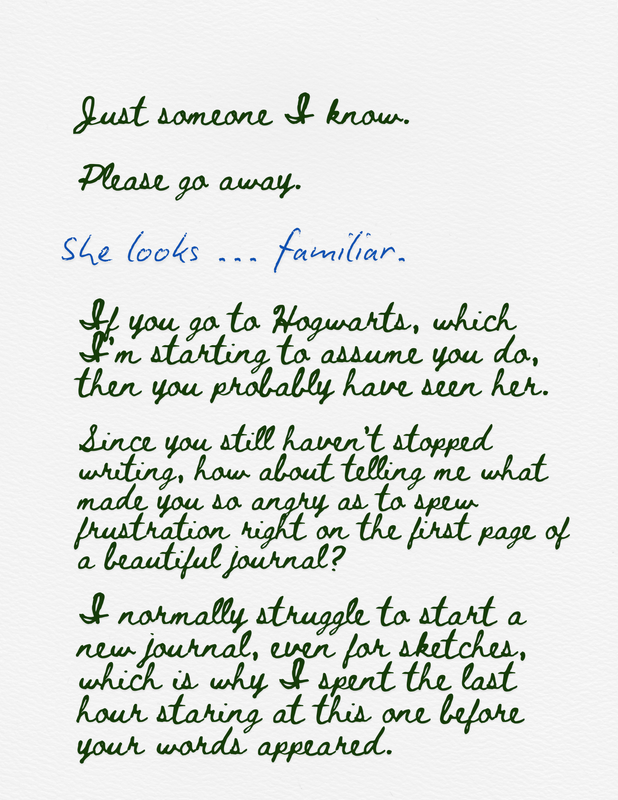 Just someone I know.
Please go away.
She looks ... familiar.
If you go to Hogwarts, which
I'm starting to assume you do,
then you probably have seen her.
Since you still haven't stopped
writing, how about telling me what
made you so angry as to spew
frustration right on the first page of
a beautiful journal?
I normally struggle to start a
new journal, even for sketches,
which is why I spent the last
hour staring at this one before
your words appeared.